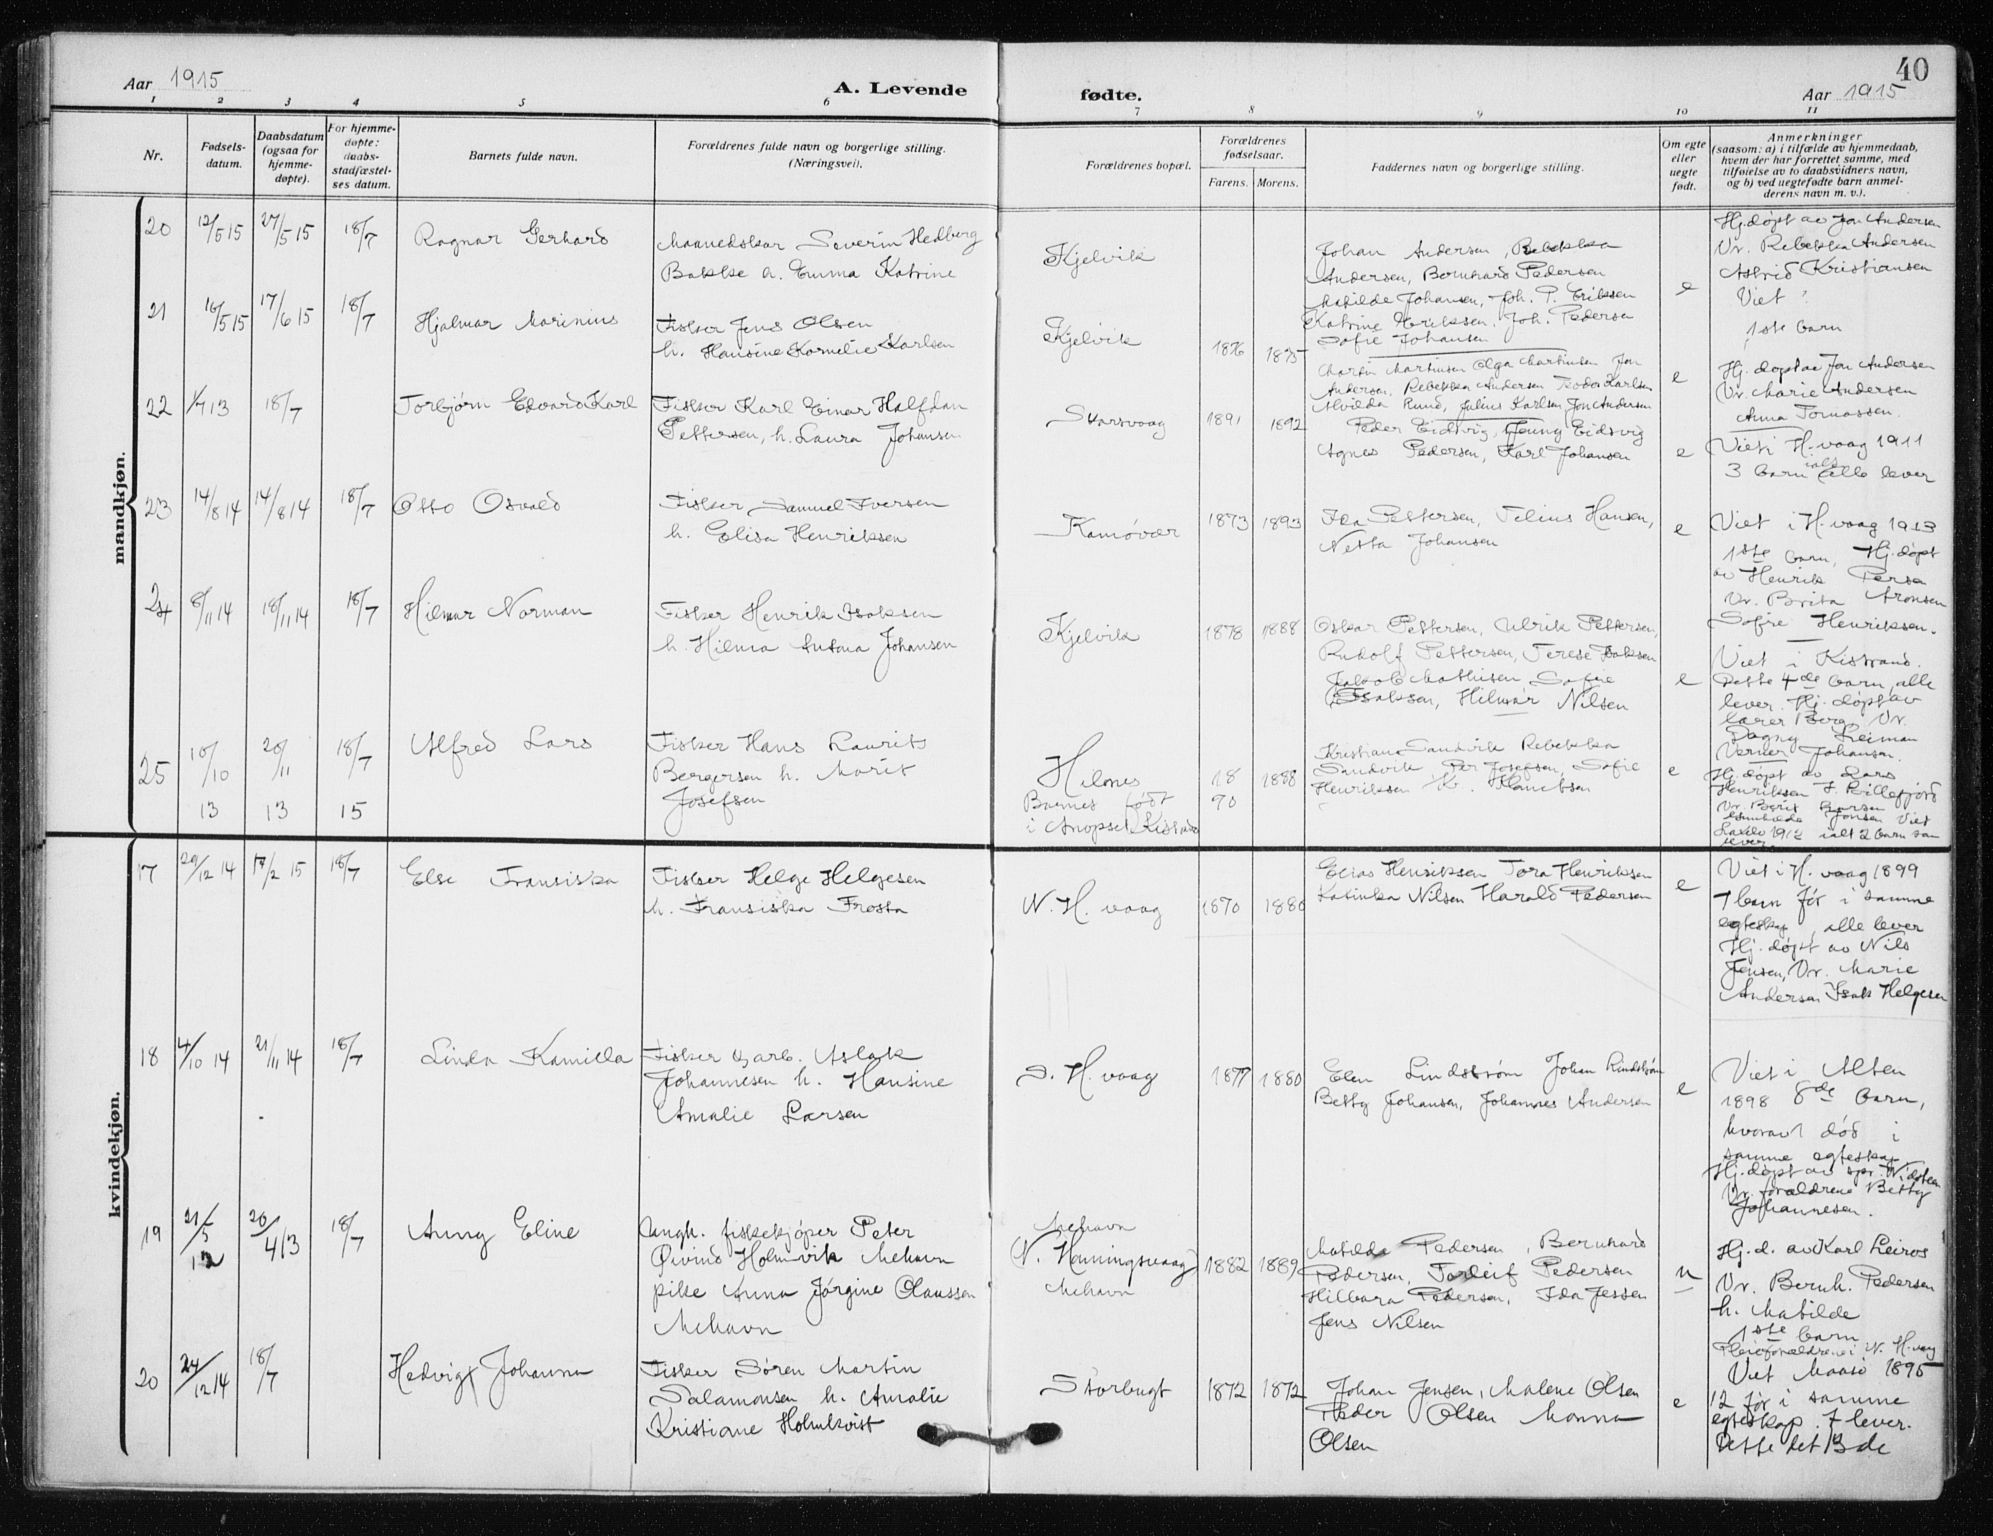 40
Aar 1915
A. Levende
fødte.
Aar 1915
1 2 3 4 5 6 7 8 9 10 11
Nr.
Fødsels-
datum.
Daabsdatum
(ogsaa for
hjemme-
døpte).
For hjemme-
døpte:
daabs-
stadfæstel-
ses datum.
Barnets fulde navn.
Forældrenes fulde navn og borgerlige stilling.
(Næringsvei).
Forældrenes bopæl.
Forældrenes
fødselsaar.
Farens. Morens.
Faddernes navn og borgerlige stilling.
Om egte
eller
uegte
født.
Anmerkninger
(saasom: a) i tilfælde av hjemmedaab,
hvem der har forrettet samme, med
tilføielse av to daabsvidners navn,
og b) ved uegtefødte barn anmel-
derens navn m. v.).
mandkjøn.
20 12/5 15 27/5 15 18/7 Ragnar Gerhard
Maanedskar Severin Hedberg
Bakke h. Emma Katrine
Kjelvik
Johan Andersen, Rebekka
Andersen, Bernhard Pedersen
Matilde Johansen, Joh. P. Eriksen
Katrine Eriksen, Joh. Pedersen
Sofie Johansen
e
Hj.døpt av Jon Andersen
Vr. Rebekka Andersen
Astrid Kristiansen
Viet ?
1ste barn
21 16/5 15 17/6 15 18/7 Hjalmar Marinius
Fisker Jens Olsen
h. Hansine Kornelie Karlsen
Kjelvik
1876 1875
Martin Martinsen Olga Martinsen Jon
Andersen, Rebekka Andersen Teodor Karlsen
Alvilda Rund, Julius Karlsen Jon Andersen
e
Hj. døpt av Jon Andersen
Vr. Marie Andersen
Anna Tomassen.
22 1/7 13 18/7 Torbjørn Edvard Karl
Fisker Karl Einar Halfdan
Pettersen, h. Laura Johansen
Skarsvaag
1891 1892
Peder Eidsvig, Jenny Eidsvig
Agnes Pedersen, Karl Johansen
e
Viet i H. vaag 1911
3 barn ialt alle lever
23 14/8 14 14/8 14 18/7 Otto Osvald
Fisker Samuel Iversen
h. Elisa Henriksen
Kamøvær
1873 1893
Ida Pettersen, Telius Hansen,
Netta Johansen
e
Viet i H. vaag 1913
1ste barn, Hj.døpt
av Henrik Persa
Vr. Brita Aronsen
Sofie Henriksen.
24 8/11 14 18/11 14 18/7 Hilmar Norman
Fisker Henrik Isaksen
h. Hilma Antona Johansen
Kjelvik
1878 1888
Oskar Pettersen, Ulrik Pettersen,
Rudolf Pettersen, Terese Isaksen
Jakob Mathisen, Sofie
Isaksen, Hilmar Nilsen
e
Viet i Kistrand.
Dette 4de barn, alle
lever. Hj. døpt av
lærer Berg. Vr.
Dagny Leiman
Verner Johansen.
25 10/10 13 20/11 13 18/7 15 Alfred Lars
Fisker Hans Laurits
Bergersen h. Marit
Josefsen
Helnes
Barnet født
i Anopset Kistrand
18 90 1888
Kristiane Sandvik Rebekka
Sandvik Per Josefsen, Sofie
Henriksen
e
Hj. døpt av Lars
Henriksen I. Billefjord
Vr. Berit Larsen
Jonsen Viet
Laxelv 1912 ialt 2 barn som
lever.
kvindekjøn.
17 29/12 14 17/2 15 18/7 Else Fransiska
Fisker Helge Helgesen
h. Fransiska Frosta
N. H. vaag
1870 1880
Elias Henriksen Tora Henriksen
Katinka Nilsen Harald Pedersen
e
Viet i H. vaag 1899
7 barn før i samme
egteskap, alle lever
Hj. døpt av Nils
Jensen, Vr. Marie
Andersen Isak Helgesen
18 4/10 14 21/11 14 18/7 Linda Kamilla
Fisker og arb. Aslak
Johannesen h. Hansine
Amalie Larsen
S. H. vaag
1877 1880
Elen Lindstrøm Johan Lindstrøm
Betty Johansen, Johannes Andersen
e
Viet i Alten
1898 8de barn,
hvorav 1 død i
samme egteskap
Hj.døpt av spr. Widsteen
Vr. forældrene Betty
Johannesen.
19 21/5 12 20/4 13 18/7 Anny Eline
Ungk. fiskekjøper Peter
Øivind Holmvik Mehavn
pike Anna Jørgine Olaussen
Mehavn
Mehavn
N. Honningsvaag
Mehavn
1882 1889
Matilda Pedersen, Bernhard
Pedersen, Torleif Pedersen
Hilbora Pedersen, Ida Jessen
Jens Nilsen
u
Hj. d. av Karl Leiros
Vr. Bernh. Pedersen
h. Matilde
1ste barn
Pleieforældrene i N. H. vaag
20 24/12 14 18/7 Hedvig Johanna
Fisker Søren Martin
Salamonsen h. Amalie
Kristiane Holmkvist
Storbugt
1872 1872
Johan Jensen, Malene Olsen
Peder Olsen Monna
Olsen
e
Viet Maasø 1895
12 før i samme
egteskap. 7 lever.
Dette det 13de